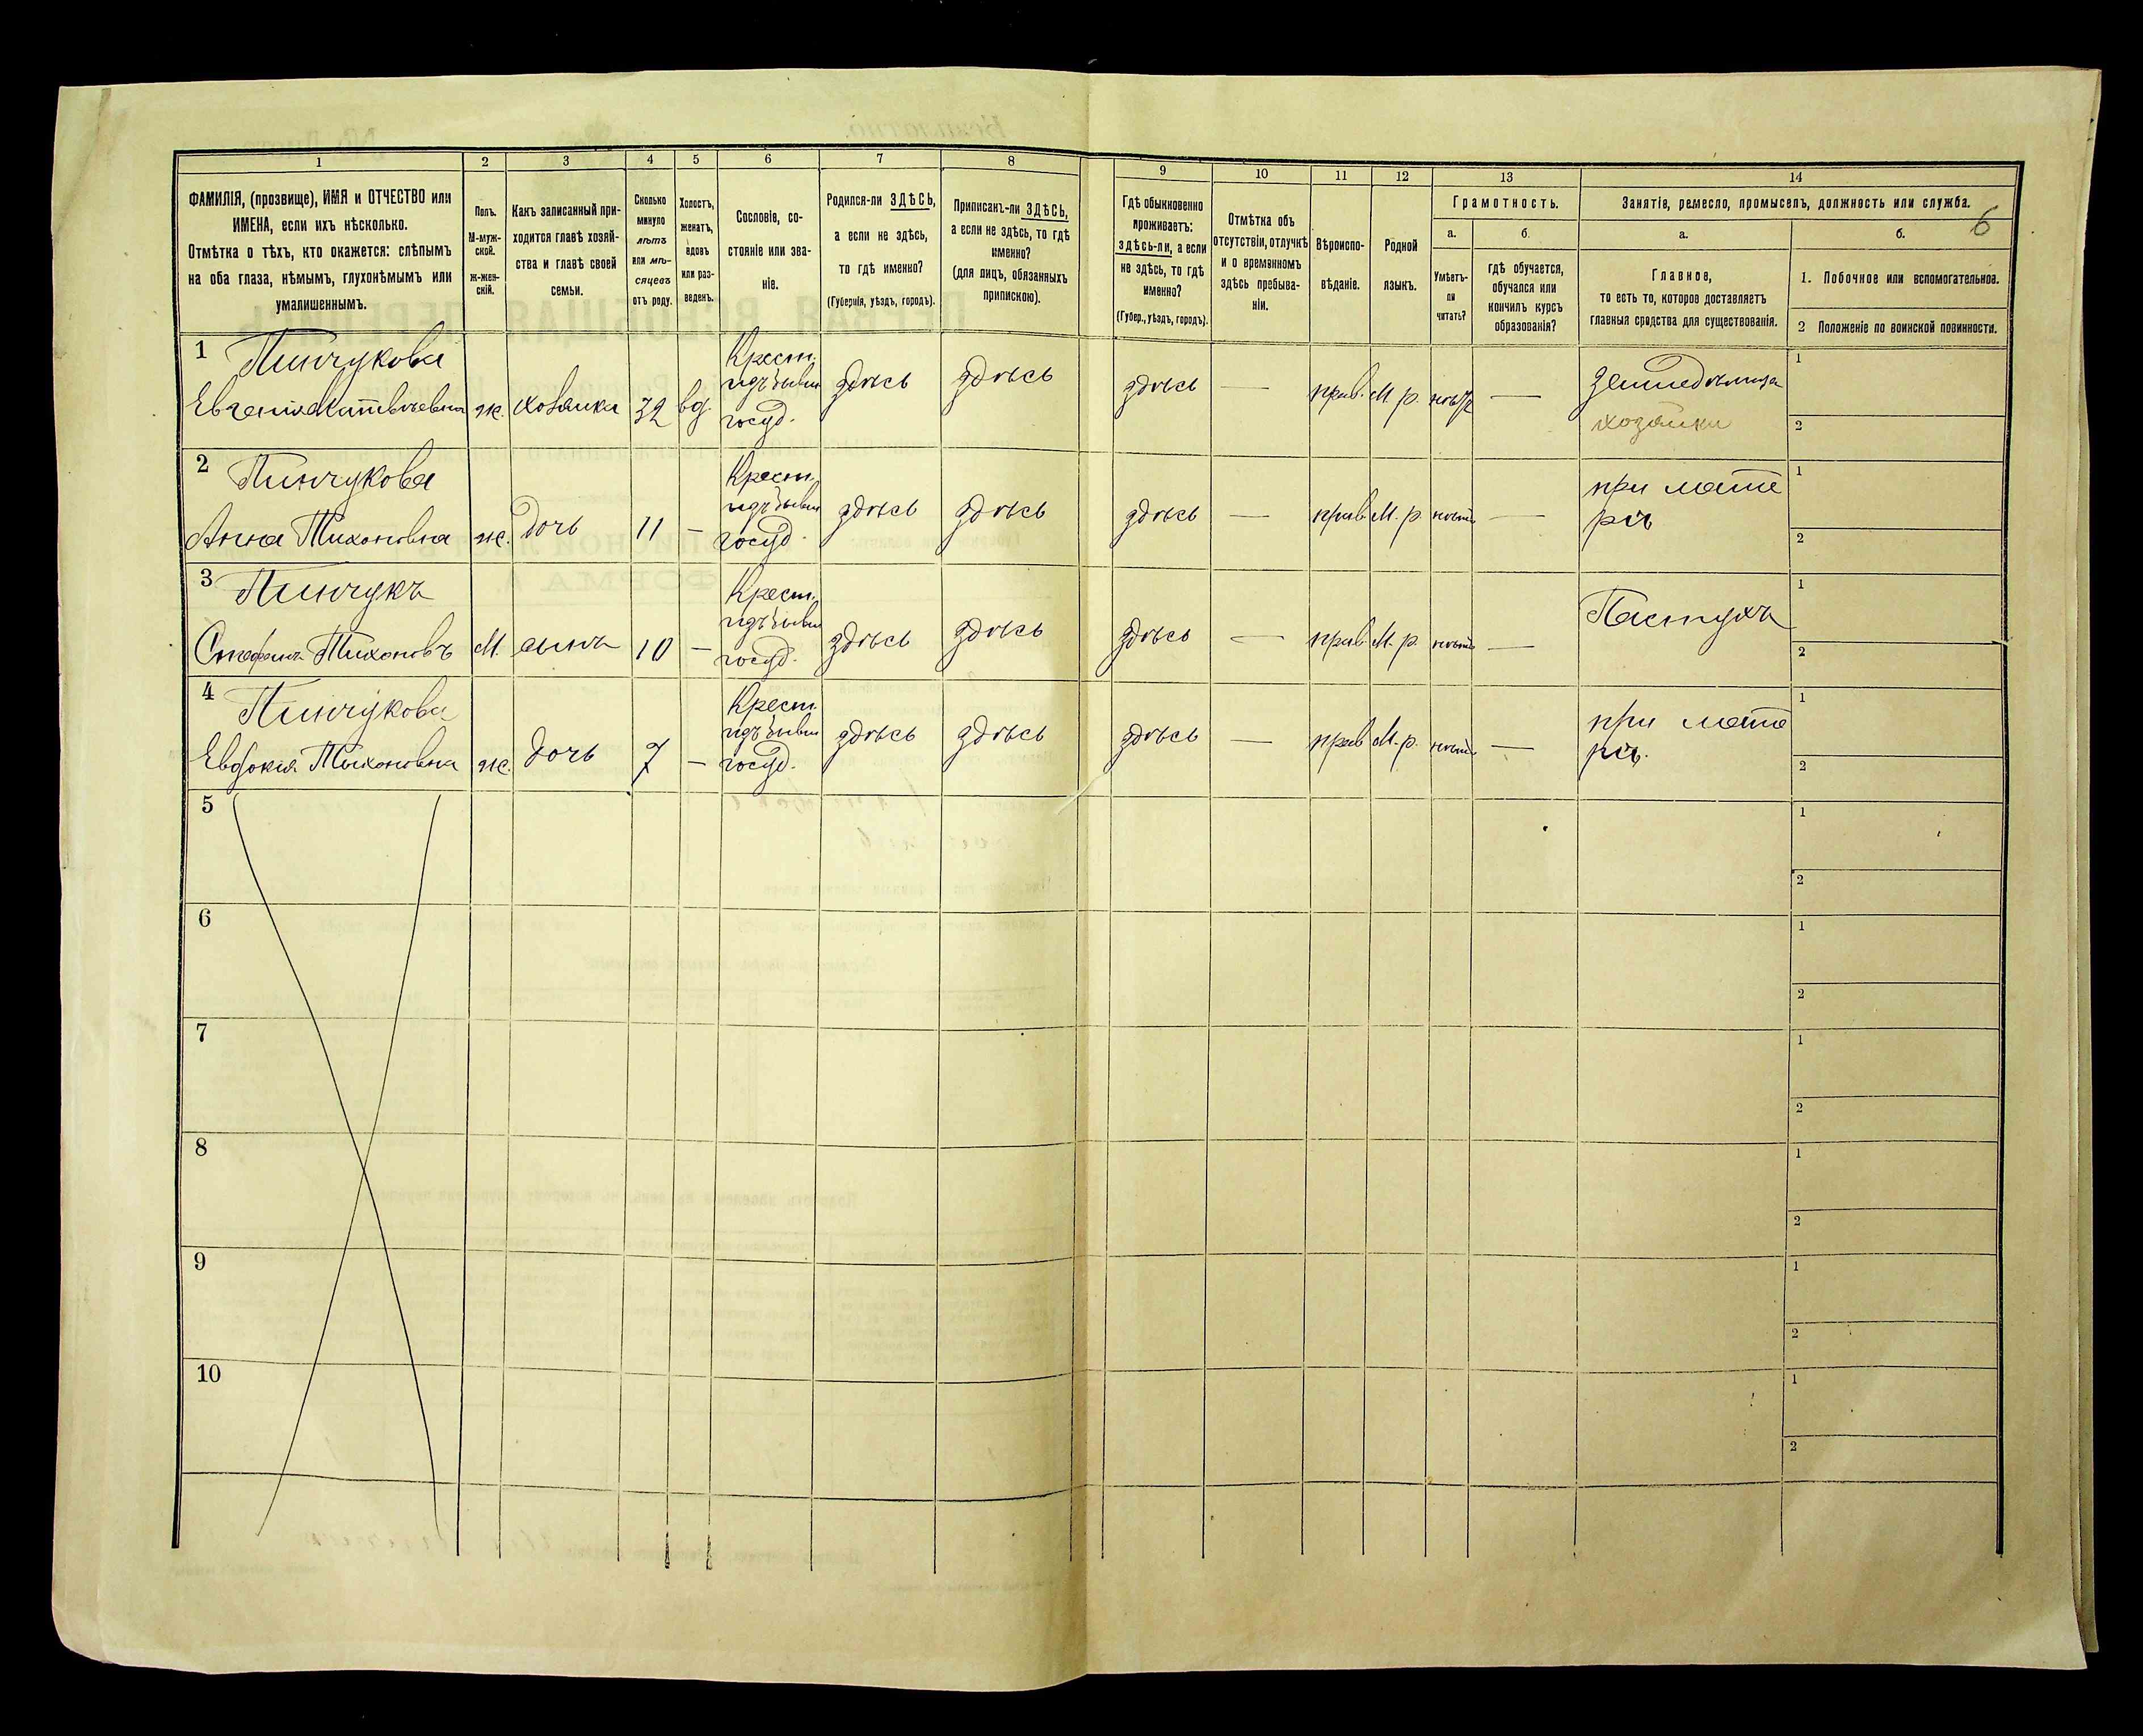 1
2
3
4
5
6
7
8
9
10
11
12
13
14
ФАМИЛІЯ, (прозвище), ИМЯ и ОТЧЕСТВО или
ИМЕНА, если ихъ нѣсколько.
Отмѣтка о тѣхъ, кто окажется: слѣпымъ
на оба глаза, нѣмымъ, глухонѣмымъ или
умалишеннымъ.
Полъ.
М-муж-
ской.
ж-жен-
скій.
Какъ записанный при-
ходится главѣ хозяй-
ства и главѣ своей
семьи.
Сколько
минуло
лѣтъ
или мѣ-
сяцевъ
отъ роду.
Холостъ,
женатъ,
вдовъ
или раз-
веденъ.
Сословіе, со-
стояніе или зва-
ніе.
Родился-ли ЗДѢСЬ,
а если не здѣсь,
то гдѣ именно?
(Губернія, уѣздъ, городъ).
Приписанъ-ли ЗДѢСЬ,
а если не здѣсь, то гдѣ
именно?
(для лицъ, обязанныхъ
припискою).
Гдѣ обыкновенно
проживаетъ:
здѣсь-ли, а если
не здѣсь, то гдѣ
именно?
(Губер., уѣздъ, городъ).
Отмѣтка объ
отсутствіи, отлучкѣ
и о временномъ
здѣсь пребыва-
ніи.
Вѣроиспо-
вѣданіе.
Родной
языкъ.
Грамотность.
а.
Умѣетъ-
ли
читать?
б.
гдѣ обучается,
обучался или
кончилъ курсъ
образованія?
Занятіе, ремесло, промыселъ, должность или служба.
6
а.
Главное,
то есть то, которое доставляетъ
главныя средства для существованія.
б.
1. Побочное или вспомогательное.
2 Положеніе по воинской повинности.
1 Пинчукова
Евгенія Матвѣевна
ж.
хозяика
32
вд.
Крест.
госуд.
здѣсь
здѣсь
здѣсь
—
прав.
М. р.
—
хозяики
1
2
2 Пинчукова
Анна Тихоновна
ж.
дочь
11
—
Крест.
госуд.
здѣсь
здѣсь
здѣсь
—
прав.
М. р.
нѣтъ
—
при мате
ри
1
2
3 Пинчукъ
Стефанъ Тихоновъ
М.
сынъ
10
—
Крест.
госуд.
здѣсь
здѣсь
здѣсь
—
прав.
М. р.
нѣтъ
—
Пастухъ
1
2
4 Пинчукова
Евдокия Тихоновна
ж.
дочь
7
—
Крест.
госуд.
здѣсь
здѣсь
здѣсь
—
прав.
М. р.
нѣтъ
—
при мате
ри.
1
2
5
1
2
6
1
2
7
1
2
8
1
2
9
1
2
10
1
2